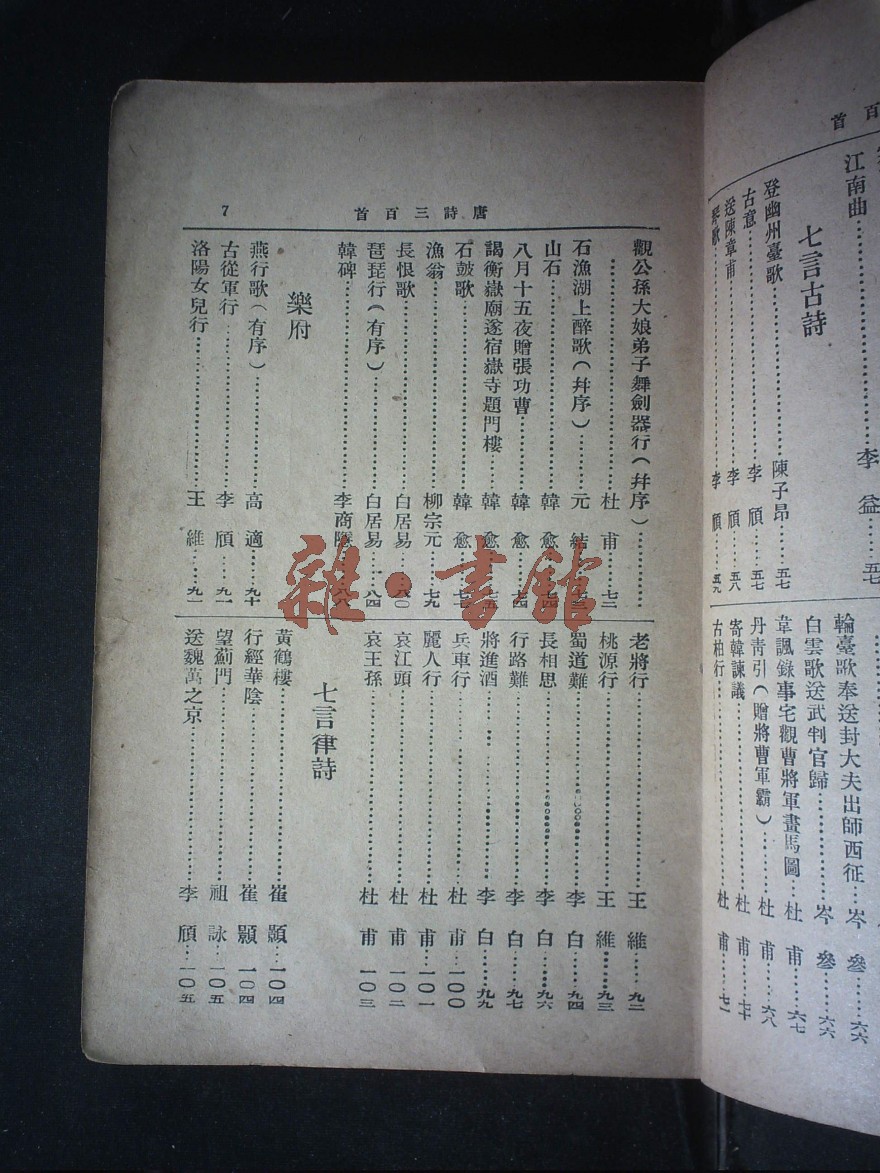 首百
江南曲……李益……五七
七言古詩
登幽州臺歌……陳子昂……五七
古意……李頎……五七
送陳章甫……李頎……五八
琴歌……李頎……五九
輪臺歌奉送封大夫出師西征……岑參……六六
白雲歌送武判官歸……岑參……六六
韋諷錄事宅觀曹將軍畫馬圖……杜甫……六七
丹青引(贈將曹軍霸)……杜甫……六八
寄韓諫議……杜甫……七十
古柏行……杜甫……七一
唐詩三百首
7
觀公孫大娘弟子舞劍器行(幷序)……
……杜甫……七二
石漁湖上醉歌(幷序)……元結……七三
山石……韓愈……七四
八月十五夜贈張功曹……韓愈……七四
謁衡嶽廟遂宿嶽寺題門樓……韓愈……七五
石鼓歌……韓愈……七七
漁翁……柳宗元……七九
長恨歌……白居易……八〇
琵琶行(有序)……白居易……八四
韓碑……李商隱……八八
樂府
燕行歌(有序)……高適……九十
古從軍行……李頎……九一
洛陽女兒行……王維……九一
老將行……王維……九二
桃源行……王維……九三
蜀道難……李白……九四
長相思……李白……九六
行路難……李白……九七
將進酒……李白……九九
兵車行……杜甫一〇〇
麗人行……杜甫一〇一
哀江頭……杜甫一〇二
哀王孫……杜甫一〇三
七言律詩
黃鶴樓……崔顥一〇四
行經華陰……崔顥一〇四
望薊門……祖詠一〇五
送魏萬之京……李頎一〇五
雜·書館